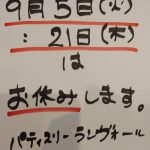 9月5日(火)
：21日(木)
は
お休みします。
パティスリーランヴォール